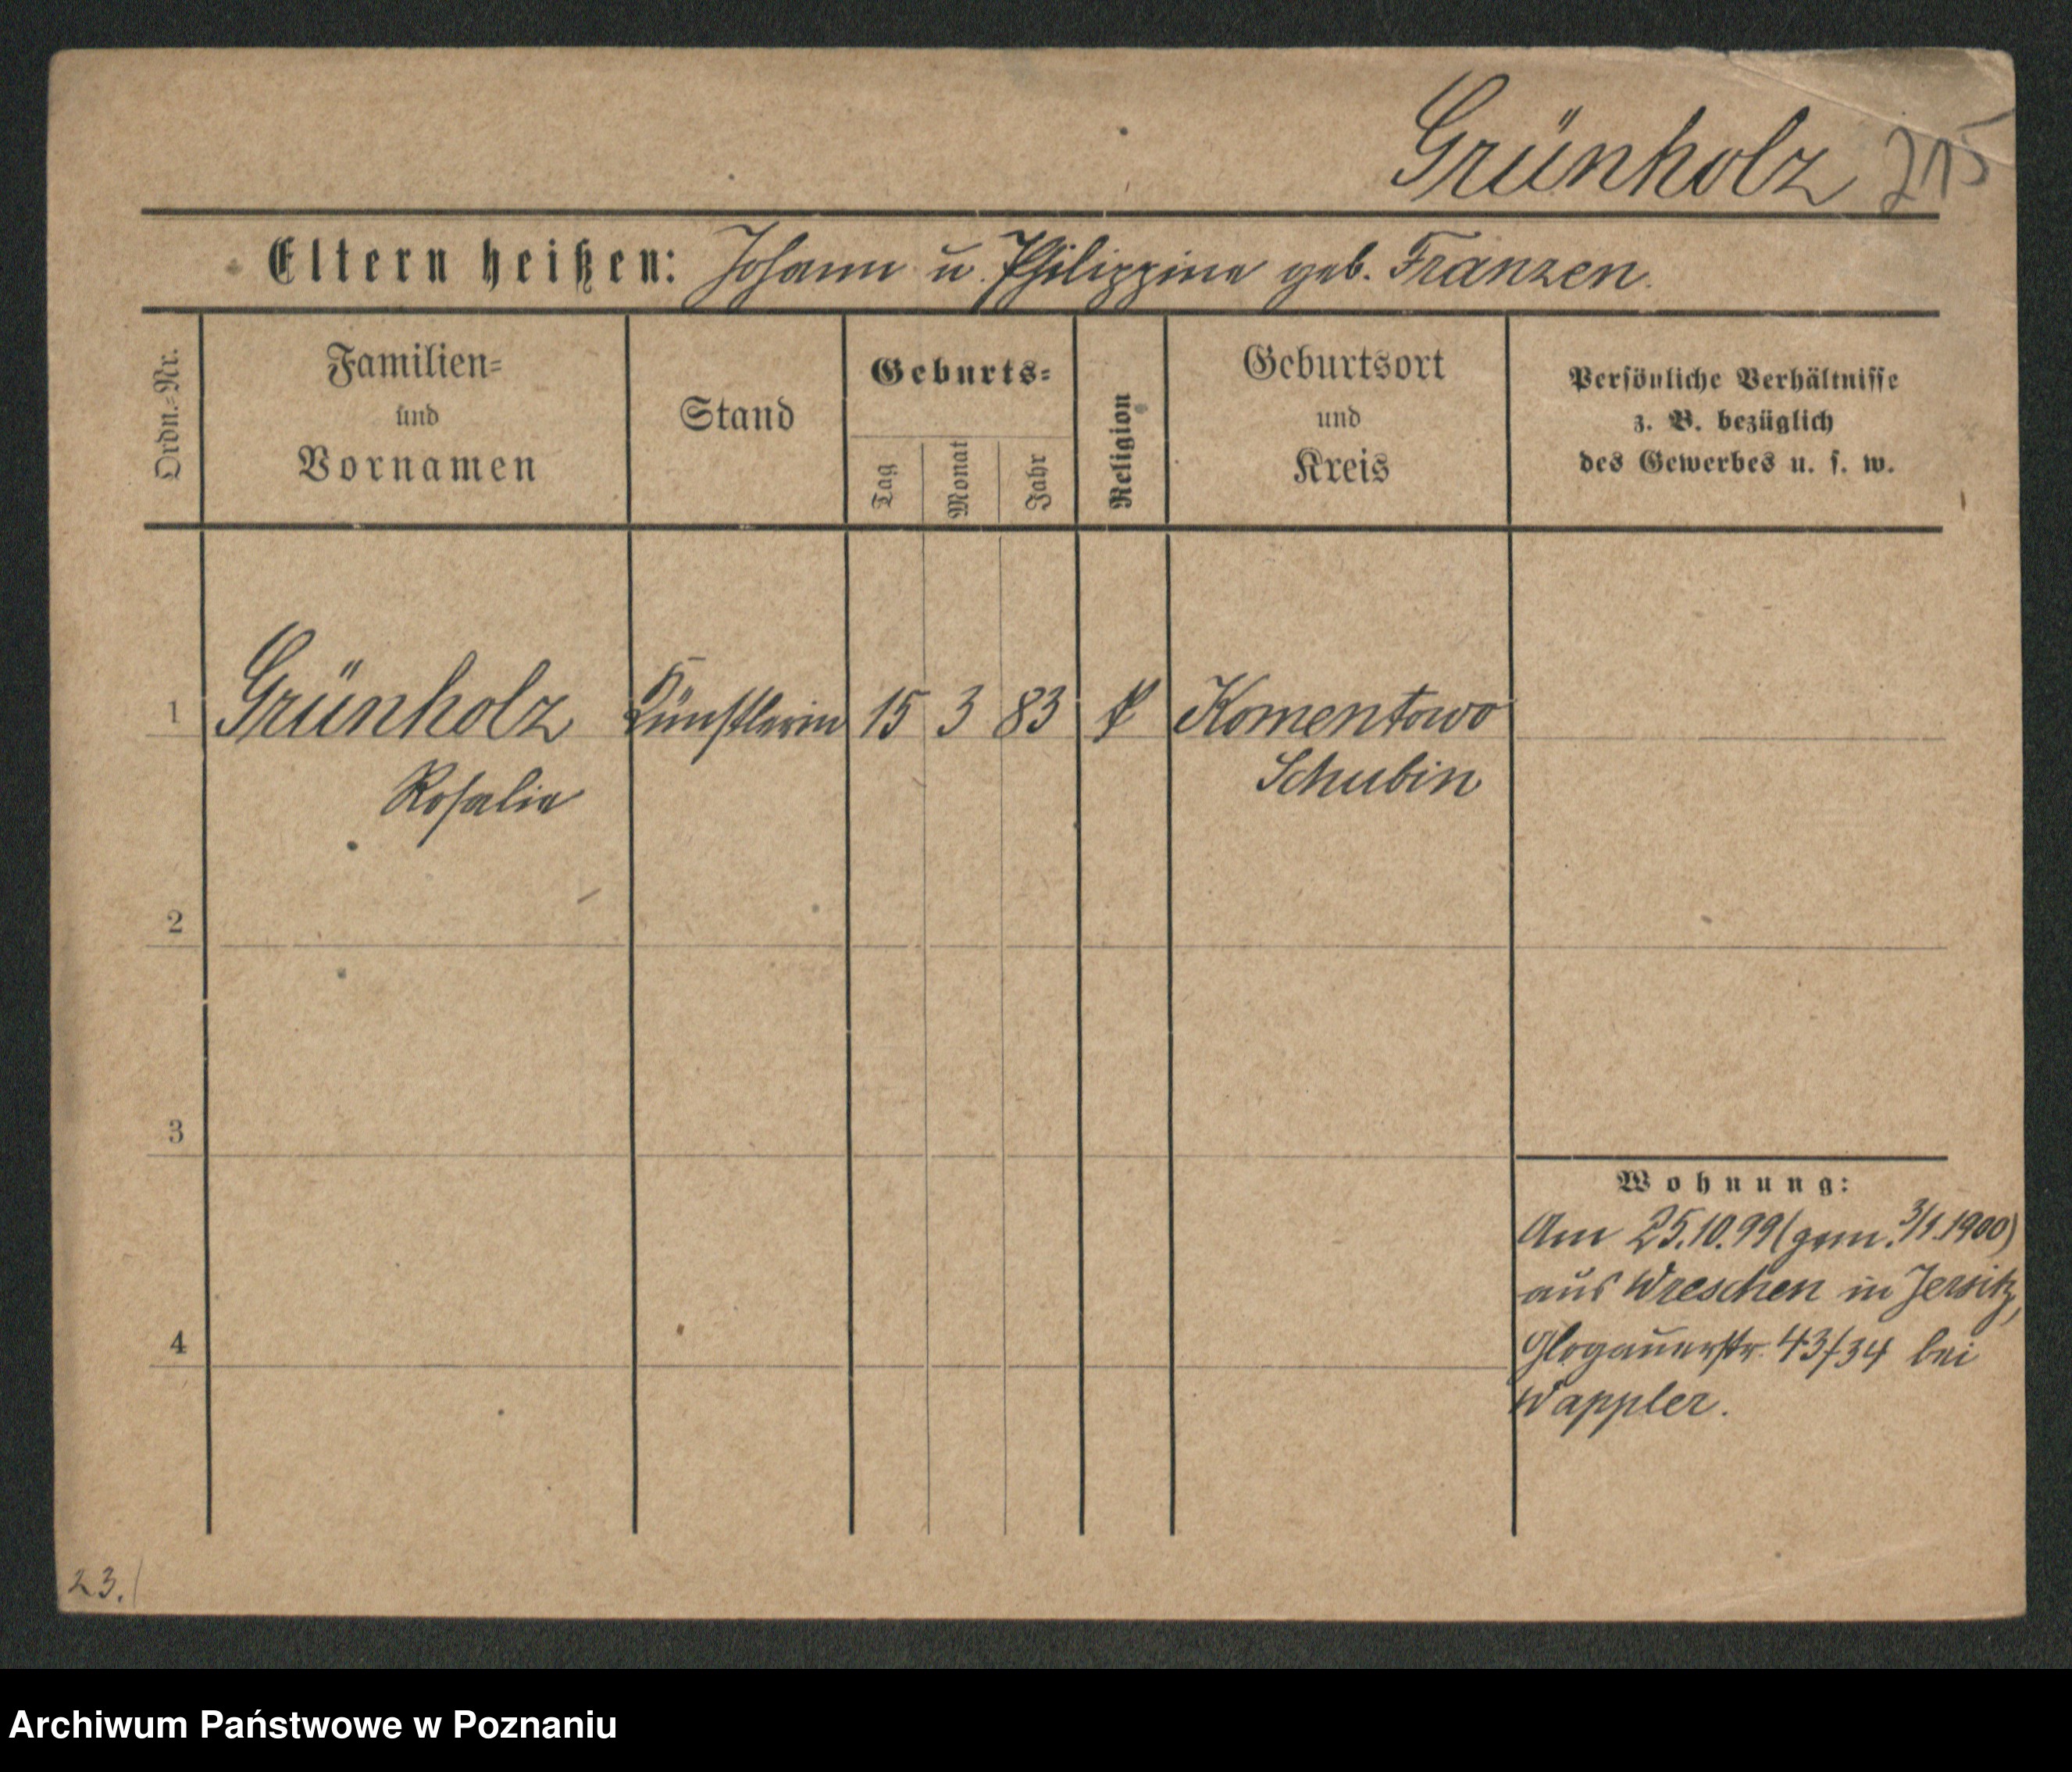 Grünholz 215
Eltern heißen: Johann u. Philippine geb. Franzen.
Ordn.-Nr.
Familien-
und
Vornamen
Stand
Geburts-
Tag
Monat
Jahr
Religion
Geburtsort
und
Kreis
Persönliche Verhältnisse
z. B. bezüglich
des Gewerbes u. s. w.
1 Grünholz Künstlerin 15 3 83 k Komentowo
Rosalie Schubin
2
3
Wohnung:
Am 25.10.99 (gem. 3/1.1900)
aus Wreschen in Jersitz,
4
Glogauerstr. 43/34 bei
Wappler.
23.
Archiwum Państwowe w Poznaniu